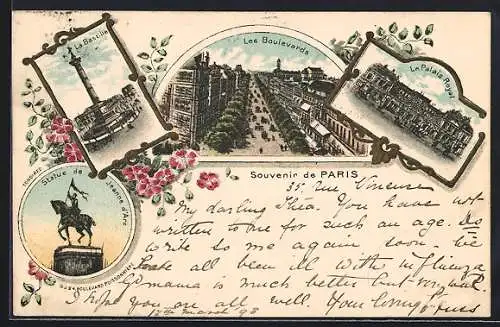 La Bastille
Les Boulevards
Le Palais-Royal
Statue de Jeanne d'Arc
Souvenir de PARIS
35, rue
My darling Thea. You have not
written to me for such an age. Do
write to me again soon. We
have all been ill with influenza
G.mama is much better but
I hope you are all well. Your loving
12th March 98
BOULEVARD POISSONNIERE